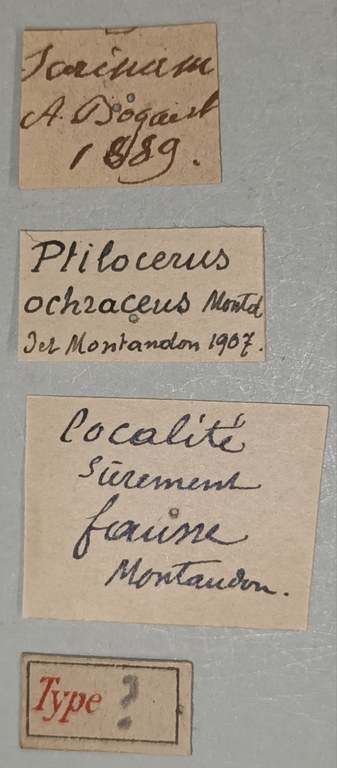 Surinam
A. Bogaert
1889.
Ptilocerus
ochraceus Montd
det Montandon 1907.
Localité
sûrement
fausse
Montandon.
Type ?